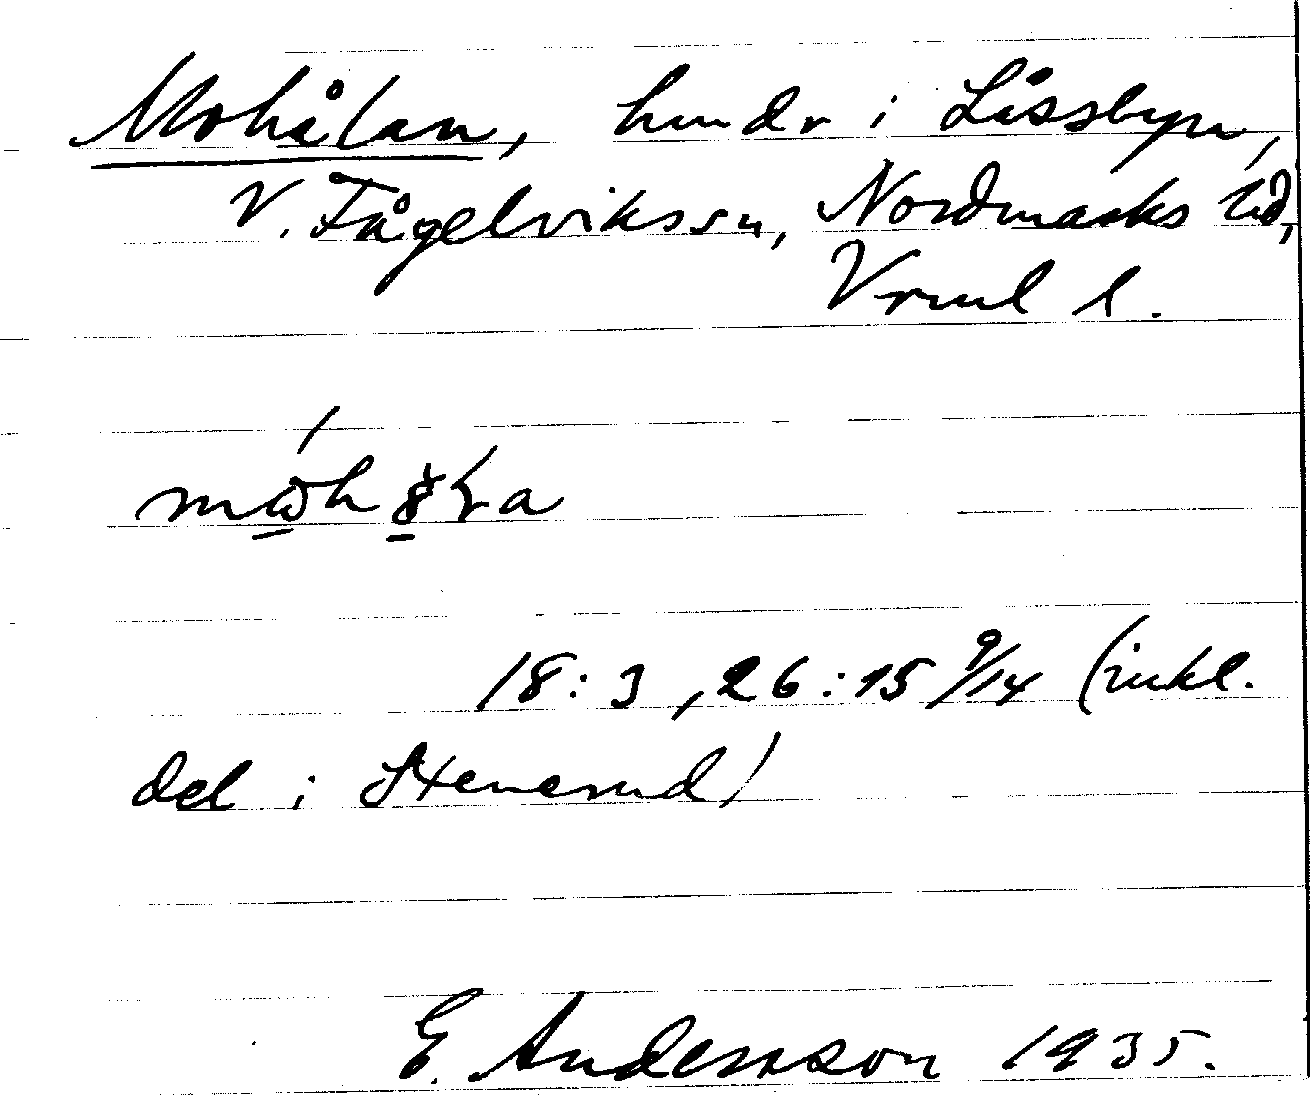 Mohålan, hmdr i Låssbyn,
V. Fågelvikssn, Nordmarks hd,
Vrml l.
18:3, 26:15 9/14 (inkl.
del i Stenerud)
E. Andersson 1935.